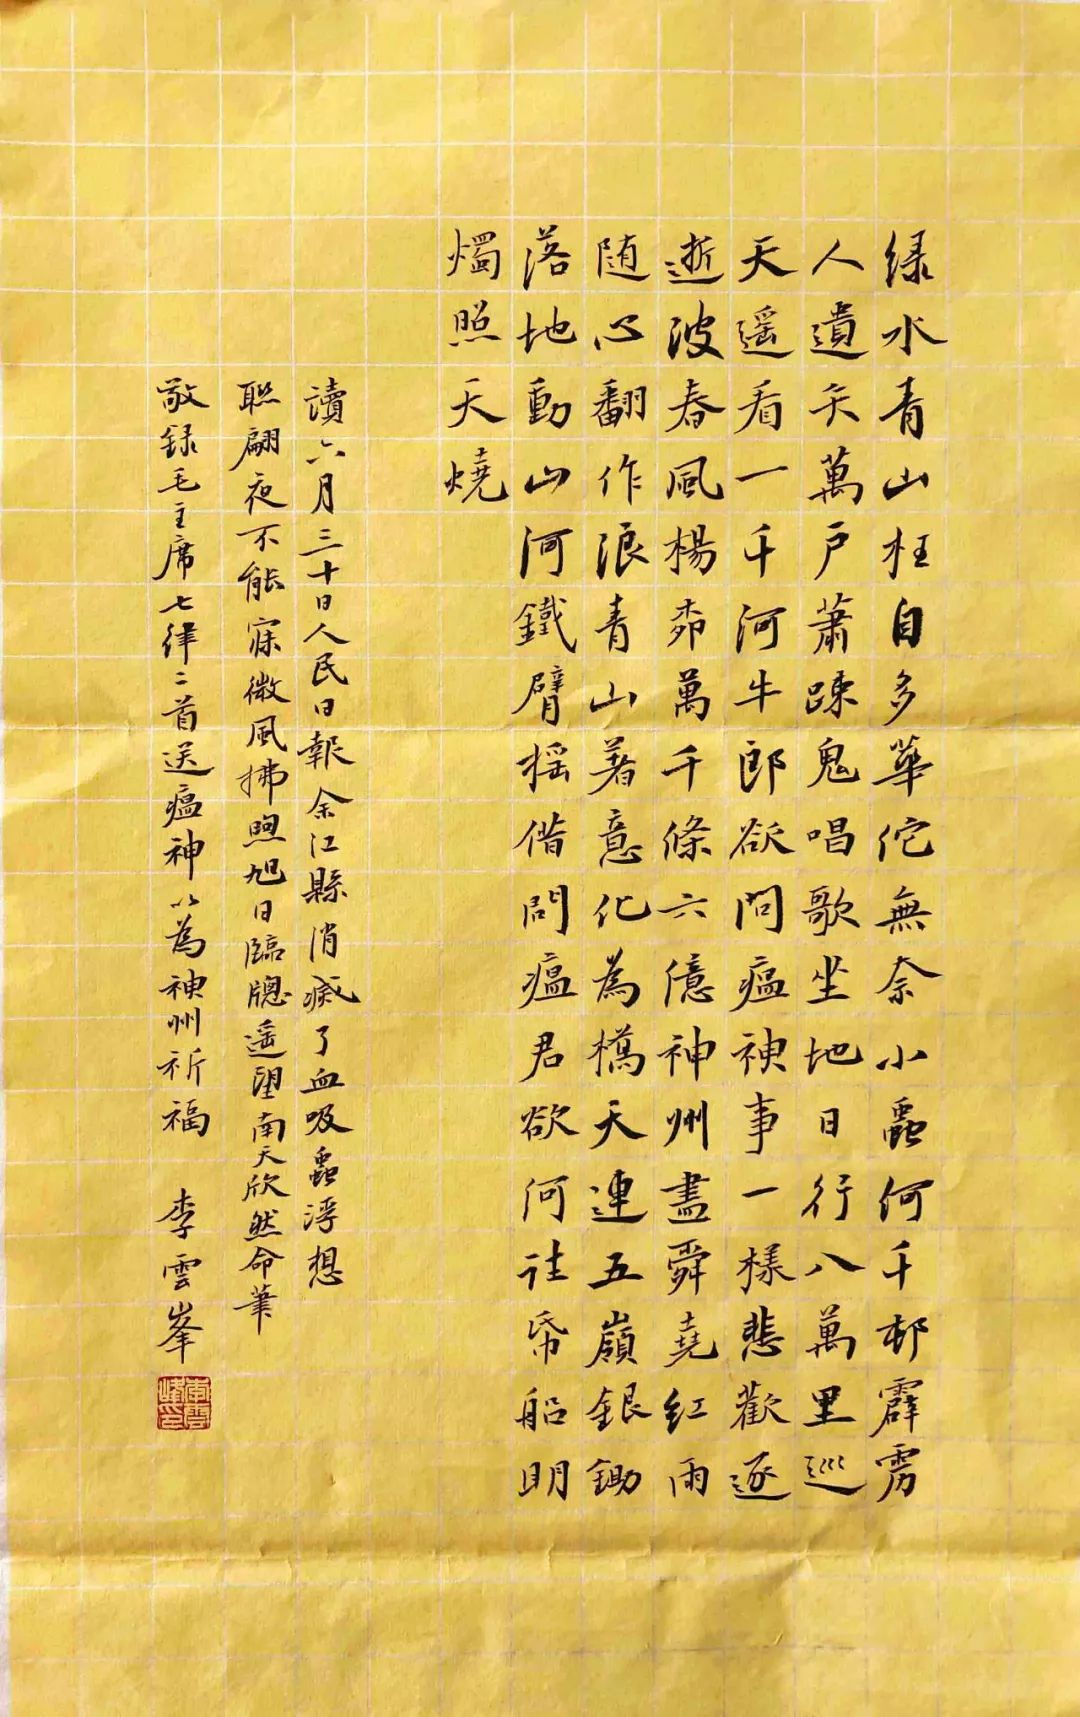 绿水青山枉自多華佗無奈小蟲何千邨霹雳
人遺矢萬户蕭踈鬼唱歌坐地日行八萬里巡
天遥看一千河牛郎欲問瘟神事一樣悲歡逐
逝波春風楊桺萬千條六億神州盡舜堯紅雨
随心翻作浪青山著意化為橋天連五嶺銀鋤
落地動山河鐵臂摇借問瘟君欲何往帋船明
燭照天燒
讀六月三十日人民日報余江縣消滅了血吸蟲浮想
聯翩夜不能寐微風拂煦旭日臨牕遥望南天欣然命筆
敬録毛主席七律二首送瘟神以為神州祈福 李雲峯